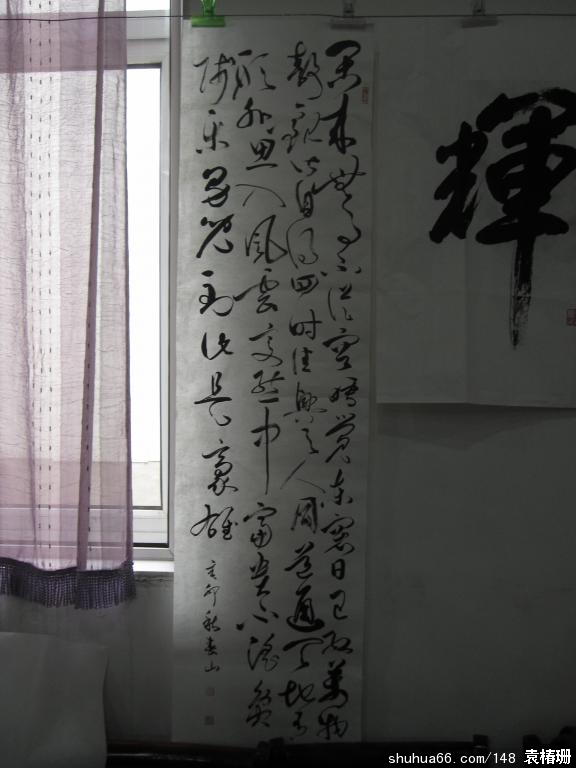 輝
閑来無事不從容睡覺東窗日已紅萬物
靜觀皆自得四时佳興與人同道通天地有
形外思入風雲變態中富貴不淫貧
賤樂男兒到此是豪雄
辛卯秋春山
shuhua66.com/148 袁椿珊